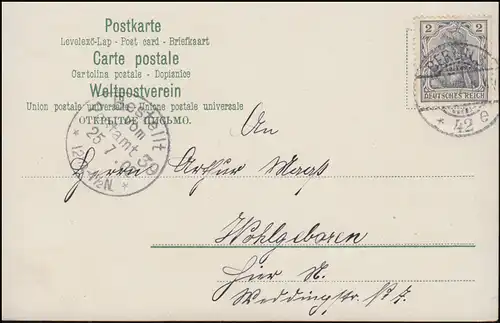 Postkarte
Levelező-Lap - Post card - Briefkaart
Carte postale
Cartolina postale - Dopisnice
Weltpostverein
Union postale universelle - Unione postale universale
ОТКРЫТОЕ ПИСЬМО.
2 2
DEUTSCHES REICH
BERLIN
* 42 e
Bestellt
vom
Postamt 39
25 7
12 - 1½N.
An
Herrn Arthur
Wohlgeboren
Hier N.
Weddingstr.